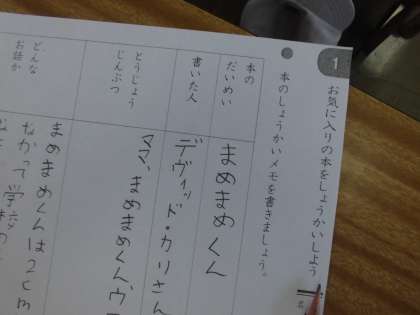 1
お気に入りの本をしょうかいしよう
本のしょうかいメモを書きましょう。
本の
だいめい
まめまめくん
書いた人
デヴィッド・カリさん
とうじょう
じんぶつ
ママ、まめまめくん、ウ
どんな
お話か
まめまめくんは2cm
なかって学